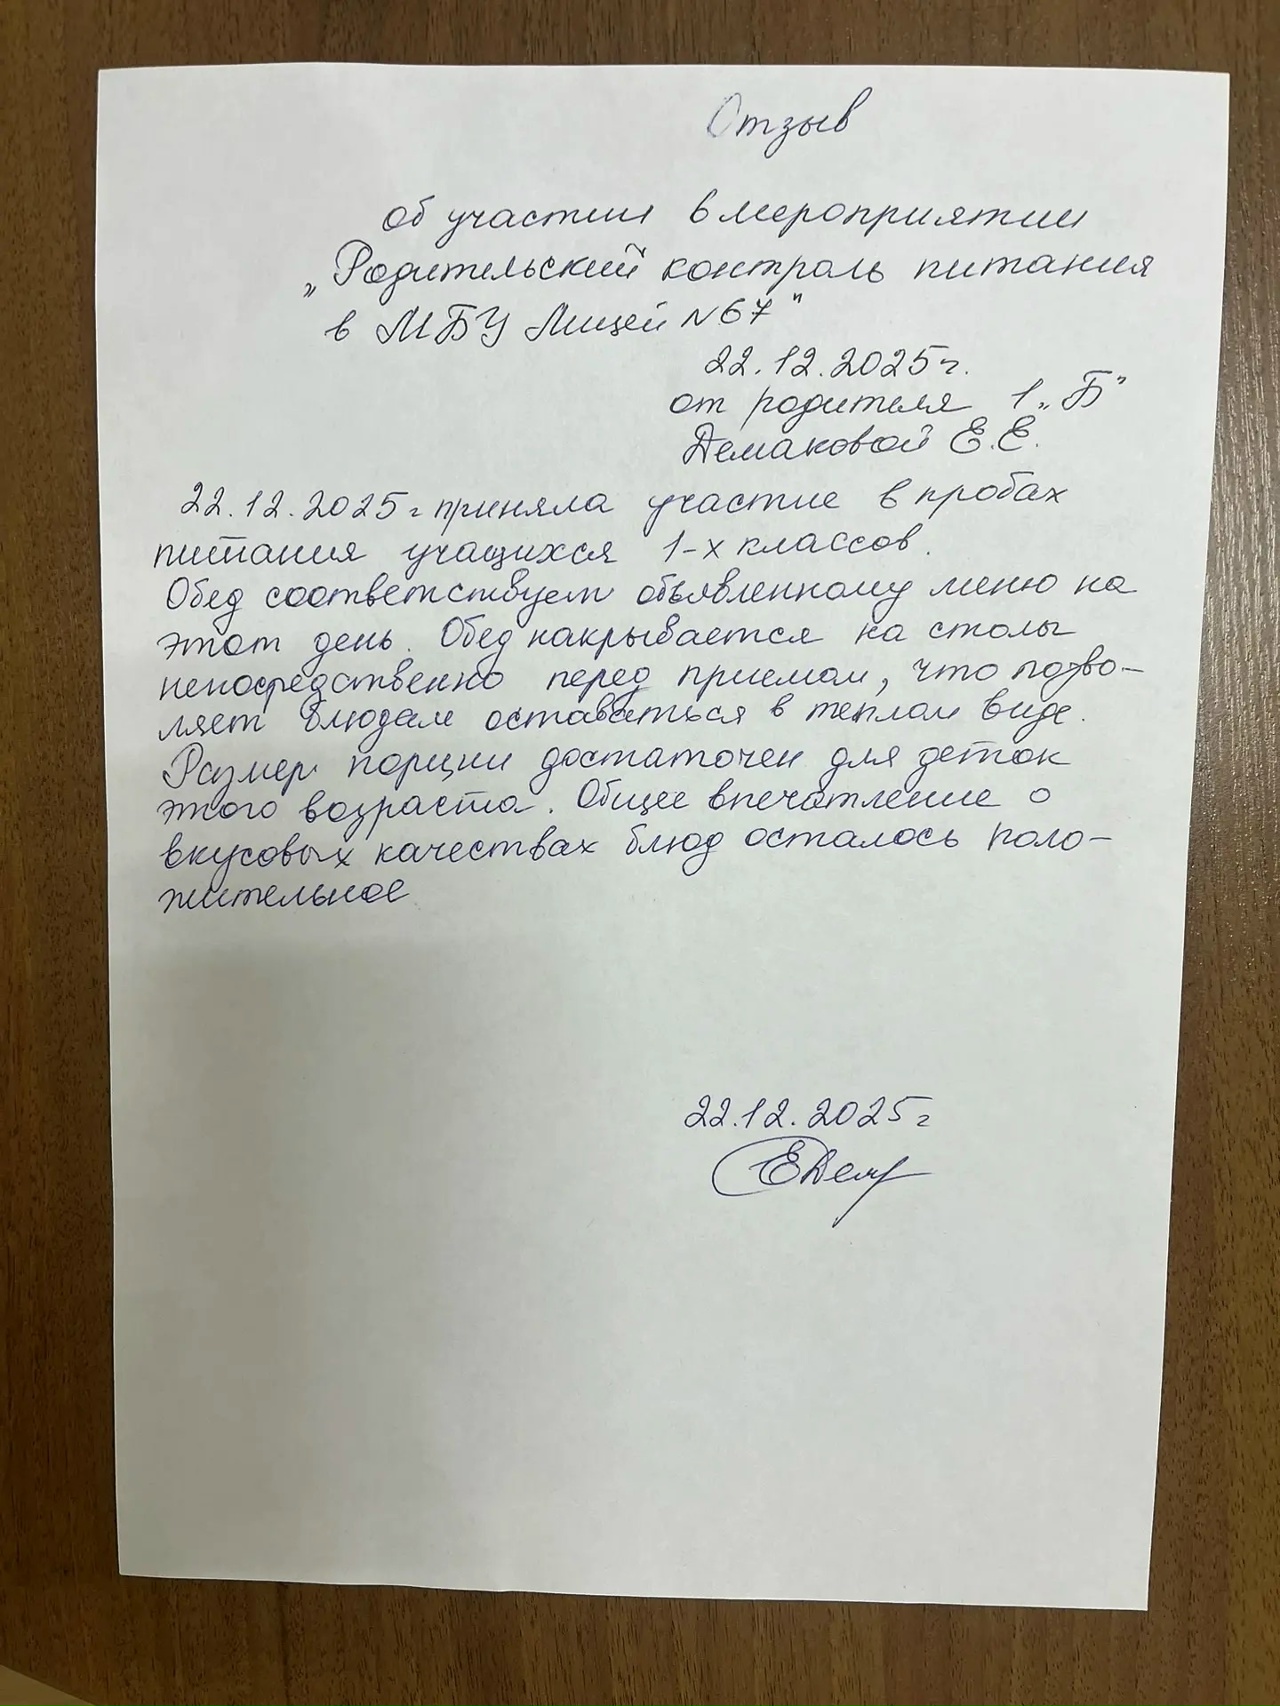 Отзыв
об участии в мероприятии
„Родительский контроль питания
в МБУ Лицей №67"
22.12.2025г.
от родителя 1„Б"
Демаковой Е.Е.
22.12.2025г приняла участие в пробах
питания учащихся 1-х классов.
Обед соответствует объявленному меню на
этот день. Обед накрывается на столы
непосредственно перед приемом, что позво-
ляет блюдам оставаться в теплом виде.
Размер порции достаточен для деток
этого возраста. Общее впечатление о
вкусовых качествах блюд осталось поло-
жительное
22.12.2025г
ЕДем